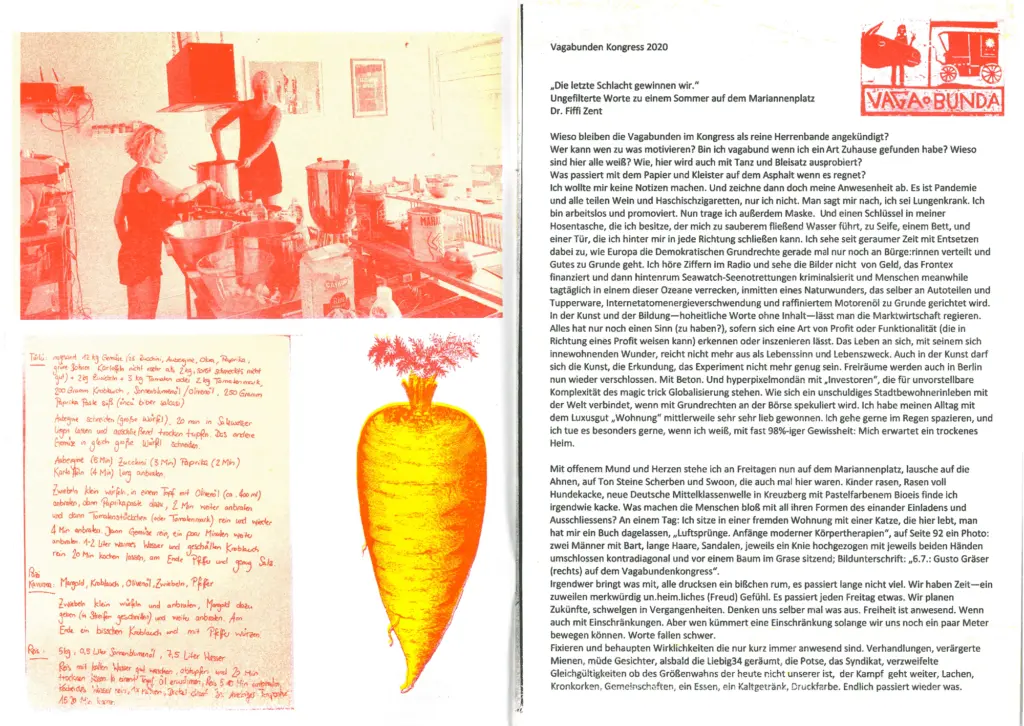 MARB
Türlü: insgesamt 12 kg Gemüse (z.B. Zucchini, Aubergine, Okra, Paprika,
grüne Bohnen Kartoffeln nicht mehr als 2 kg, sonst schmeckts nicht
gut) + 2 kg Zwiebeln + 3 kg Tomaten oder 2 kg Tomatenmark,
200 Gramm Knoblauch, Sonnenblumenöl / Olivenöl, 250 Gramm
Paprika Paste süß (ince biber salcasi)
Aubergine schneiden (große Würfel), 20 min in Salzwasser
legen lassen und anschließend trocken tupfen. Das andere
Gemüse in gleich große Würfel schneiden.
Aubergine (5 Min) Zucchini (3 Min) Paprika (2 Min)
Kartoffeln (4 Min) lang anbraten.
Zwiebeln klein würfeln, in einem Topf mit Olivenöl (ca. 400 ml)
anbraten, dann Paprikapaste dazu, 2 Min weiter anbraten
und dann Tomatenstückchen (oder Tomatenmark) rein und wieder
4 Min anbraten. Dann Gemüse rein, ein paar Minuten weiter
anbraten. 1-2 Liter warmes Wasser und geschälten Knoblauch
rein 20 Min kochen lassen, am Ende Pfeffer und genug Salz.
Mangold, Knoblauch, Olivenöl, Zwiebeln, Pfeffer
Zwiebeln klein würfeln und anbraten, Mangold dazu
geben (in Streifen geschnitten) und weiter anbraten. Am
Ende ein bisschen Knoblauch und mit Pfeffer würzen
Reis: 5 kg, 0,5 Liter Sonnenblumenöl, 7,5 Liter Wasser
Reis mit kaltem Wasser gut waschen, abtupfen und 20 Min
trocknen lassen. In einem Topf Öl erwärmen, Reis 5-10 Min anbraten,
kochendes Wasser rein, 1x kochen, Deckel drauf
15-20 Min
Vagabunden Kongress 2020
VAGA BUNDA
„Die letzte Schlacht gewinnen wir.“
Ungefilterte Worte zu einem Sommer auf dem Mariannenplatz
Dr. Fiffi Zent
Wieso bleiben die Vagabunden im Kongress als reine Herrenbande angekündigt?
Wer kann wen zu was motivieren? Bin ich vagabund wenn ich ein Art Zuhause gefunden habe? Wieso
sind hier alle weiß? Wie, hier wird auch mit Tanz und Bleisatz ausprobiert?
Was passiert mit dem Papier und Kleister auf dem Asphalt wenn es regnet?
Ich wollte mir keine Notizen machen. Und zeichne dann doch meine Anwesenheit ab. Es ist Pandemie
und alle teilen Wein und Haschischzigaretten, nur ich nicht. Man sagt mir nach, ich sei Lungenkrank. Ich
bin arbeitslos und promoviert. Nun trage ich außerdem Maske. Und einen Schlüssel in meiner
Hosentasche, die ich besitze, der mich zu sauberem fließend Wasser führt, zu Seife, einem Bett, und
einer Tür, die ich hinter mir in jede Richtung schließen kann. Ich sehe seit geraumer Zeit mit Entsetzen
dabei zu, wie Europa die Demokratischen Grundrechte gerade mal nur noch an Bürge:rinnen verteilt und
Gutes zu Grunde geht. Ich höre Ziffern im Radio und sehe die Bilder nicht von Geld, das Frontex
finanziert und dann hintenrum Seawatch-Seenotrettungen kriminalisiert und Menschen meanwhile
tagtäglich in einem dieser Ozeane verrecken, inmitten eines Naturwunders, das selber an Autoteilen und
Tupperware, Internetatomenergieverschwendung und raffiniertem Motorenöl zu Grunde gerichtet wird.
In der Kunst und der Bildung—hoheitliche Worte ohne Inhalt—lässt man die Marktwirtschaft regieren.
Alles hat nur noch einen Sinn (zu haben?), sofern sich eine Art von Profit oder Funktionalität (die in
Richtung eines Profit weisen kann) erkennen oder inszenieren lässt. Das Leben an sich, mit seinem
innewohnenden Wunder, reicht nicht mehr aus als Lebenssinn und Lebenszweck. Auch in der Kunst darf
sich die Kunst, die Erkundung, das Experiment nicht mehr genug sein. Freiräume werden auch in Berlin
nun wieder verschlossen. Mit Beton. Und hyperpixelmondän mit „Investoren“, die für unvorstellbare
Komplexität des magic trick Globalisierung stehen. Wie sich ein unschuldiges Stadtbewohnerinleben mit
der Welt verbindet, wenn mit Grundrechten an der Börse spekuliert wird. Ich habe meinen Alltag mit
dem Luxusgut „Wohnung“ mittlerweile sehr sehr lieb gewonnen. Ich gehe gerne im Regen spazieren, und
ich tue es besonders gerne, wenn ich weiß, mit fast 98%-iger Gewissheit: Mich erwartet ein trockenes
Heim.
Mit offenem Mund und Herzen stehe ich an Freitagen nun auf dem Mariannenplatz, lausche auf die
Ahnen, auf Ton Steine Scherben und Swoon, die auch mal hier waren. Kinder rasen, Rasen voll
Hundekacke, neue Deutsche Mittelklassenwelle in Kreuzberg mit Pastelfarbenem Bioeis finde ich
irgendwie kacke. Was machen die Menschen bloß mit all ihren Formen des einander Einladens und
Ausschliessens? An einem Tag: Ich sitze in einer fremden Wohnung mit einer Katze, die hier lebt, man
hat mir ein Buch dagelassen, „Luftsprünge. Anfänge moderner Körpertherapien“, auf Seite 92 ein Photo:
zwei Männer mit Bart, lange Haare, Sandalen, jeweils ein Knie hochgezogen mit jeweils beiden Händen
umschlossen kontradiagonal und vor einem Baum im Grase sitzend; Bildunterschrift: „6.7.: Gusto Gräser
(rechts) auf dem Vagabundenkongress“.
Irgendwer bringt was mit, alle drucksen ein bißchen rum, es passiert lange nicht viel. Wir haben Zeit—ein
zuweilen merkwürdig un.heim.liches (Freud) Gefühl. Es passiert jeden Freitag etwas. Wir planen
Zukünfte, schwelgen in Vergangenheiten. Denken uns selber mal was aus. Freiheit ist anwesend. Wenn
auch mit Einschränkungen. Aber wen kümmert eine Einschränkung solange wir uns noch ein paar Meter
bewegen können. Worte fallen schwer.
Fixieren und behaupten Wirklichkeiten die nur kurz immer anwesend sind. Verhandlungen, verärgerte
Mienen, müde Gesichter, alsbald die Liebig34 geräumt, die Potse, das Syndikat, verzweifelte
Gleichgültigkeiten ob des Größenwahns der heute nicht unserer ist, der Kampf geht weiter, Lachen,
Kronkorken, Gemeinschaften, ein Essen, ein Kaltgetränk, Druckfarbe. Endlich passiert wieder was.